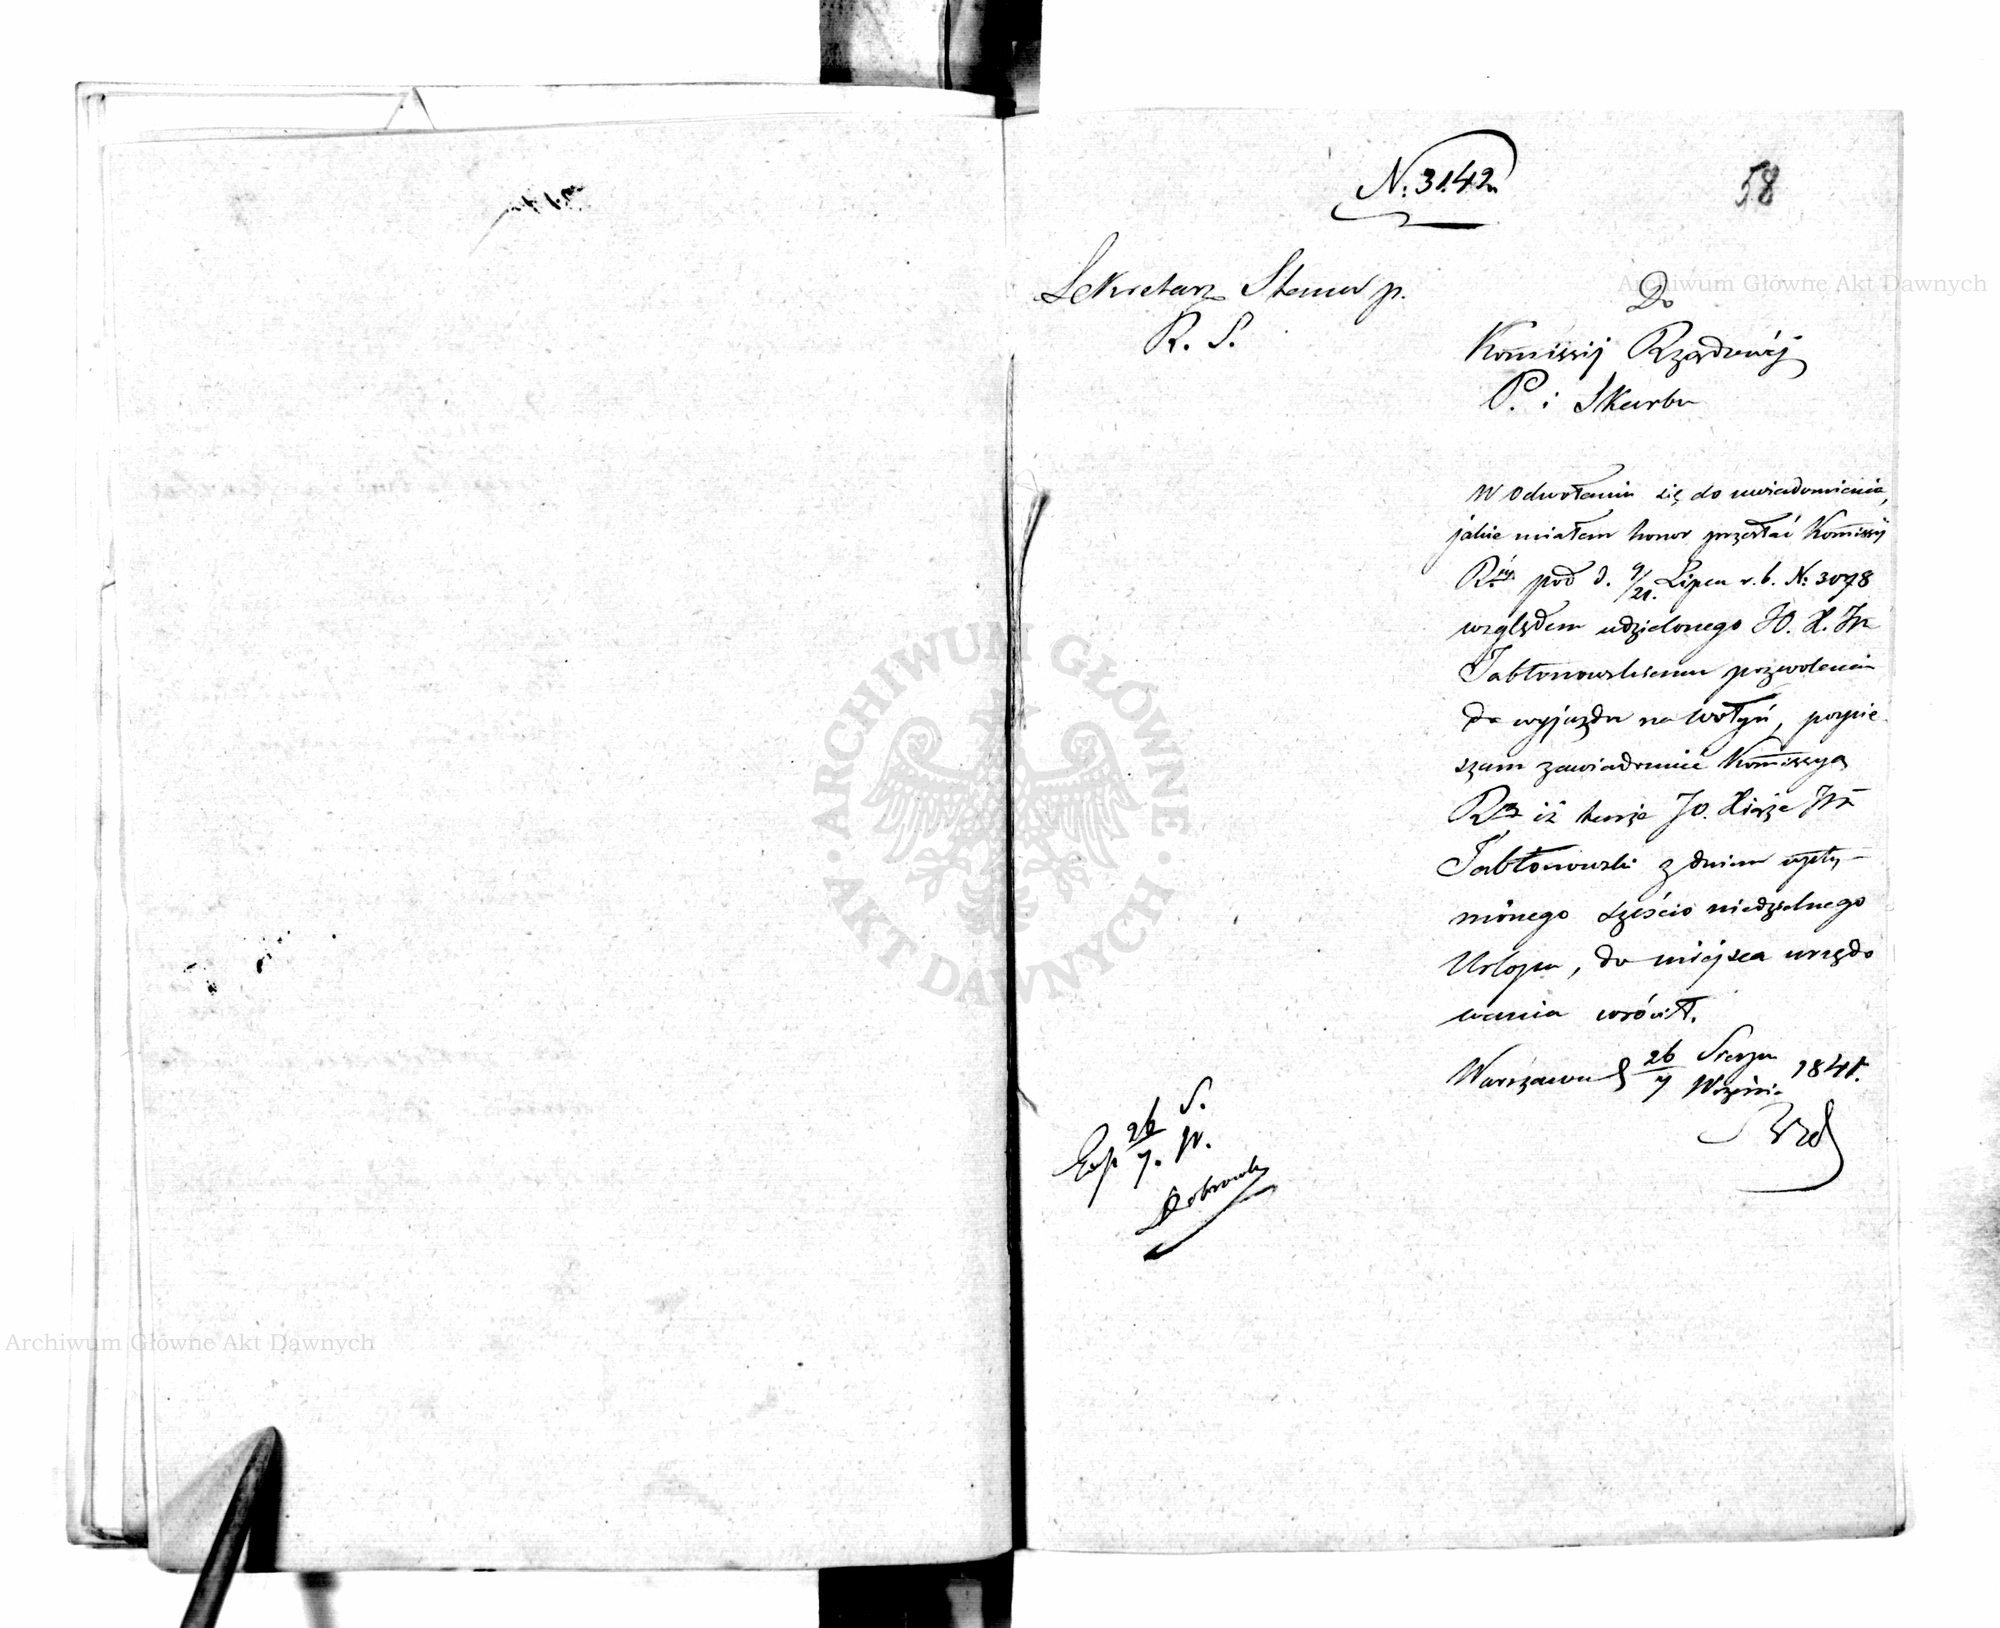 N: 3142
58
Sekretarz Stanu p.
R. S.
Do
Kommissij Rządowéj
P. i Skarbu
W odwołaniu się do uwiadomienia,
jakie miałem honor przesłać Kommissij
Rwéj pod d. 9/21. Lipca r. b. N: 3078
względem udzielonego JO. X.
Jabłonowskiemu pozwolenia
do wyjazdu na Wołyń, pospie
szam zawiadomić Kommissyą
iż tenże JO. Xiąże
Jabłonowski z dniem upły-
nionego sześcio niedzielnego
Urlopu, do miejsca urzędo
wania wrócił.
Warszawa d 26 Sierpn / 7 Wrześnią 1841.
Exp 26/7. S. W.
ARCHIWUM GŁÓWNE AKT DAWNYCH
Archiwum Główne Akt Dawnych
Archiwum Główne Akt Dawnych